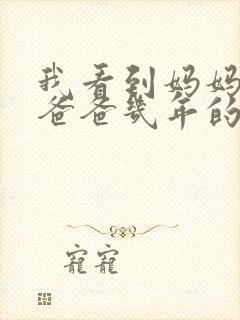 我看到妈妈
爸爸几年的
寵寵